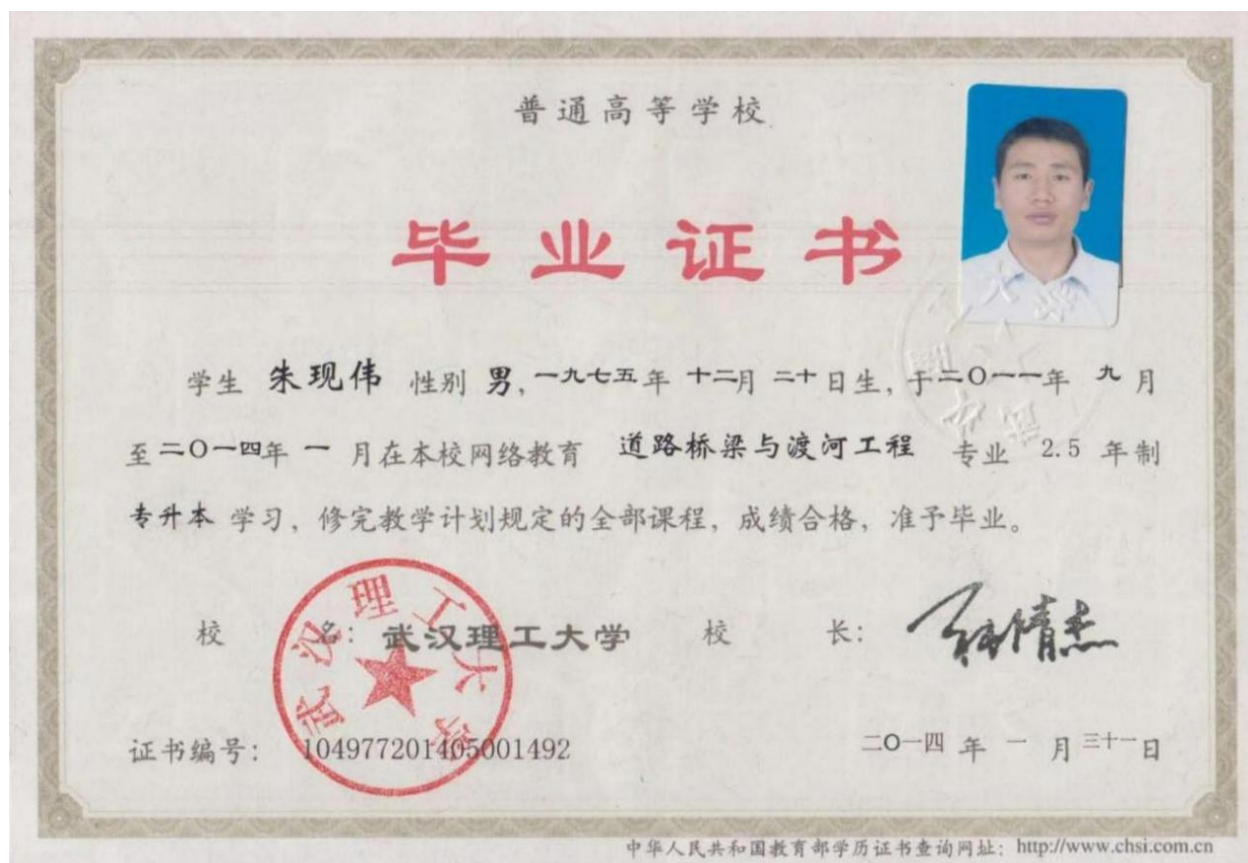 普通高等学校
毕业证书
学生 朱现伟 性别 男,一九七五年 十二月 二十日生,于二〇一一年 九月
至二〇一四年 一 月在本校网络教育 道路桥梁与渡河工程 专业 2.5 年制
专升本 学习,修完教学计划规定的全部课程,成绩合格,准予毕业。
校 名:武汉理工大学 校 长:
武汉理工大学
证书编号:104977201405001492 二〇一四 年 一 月 三十一日
中华人民共和国教育部学历证书查询网址:http://www.chsi.com.cn